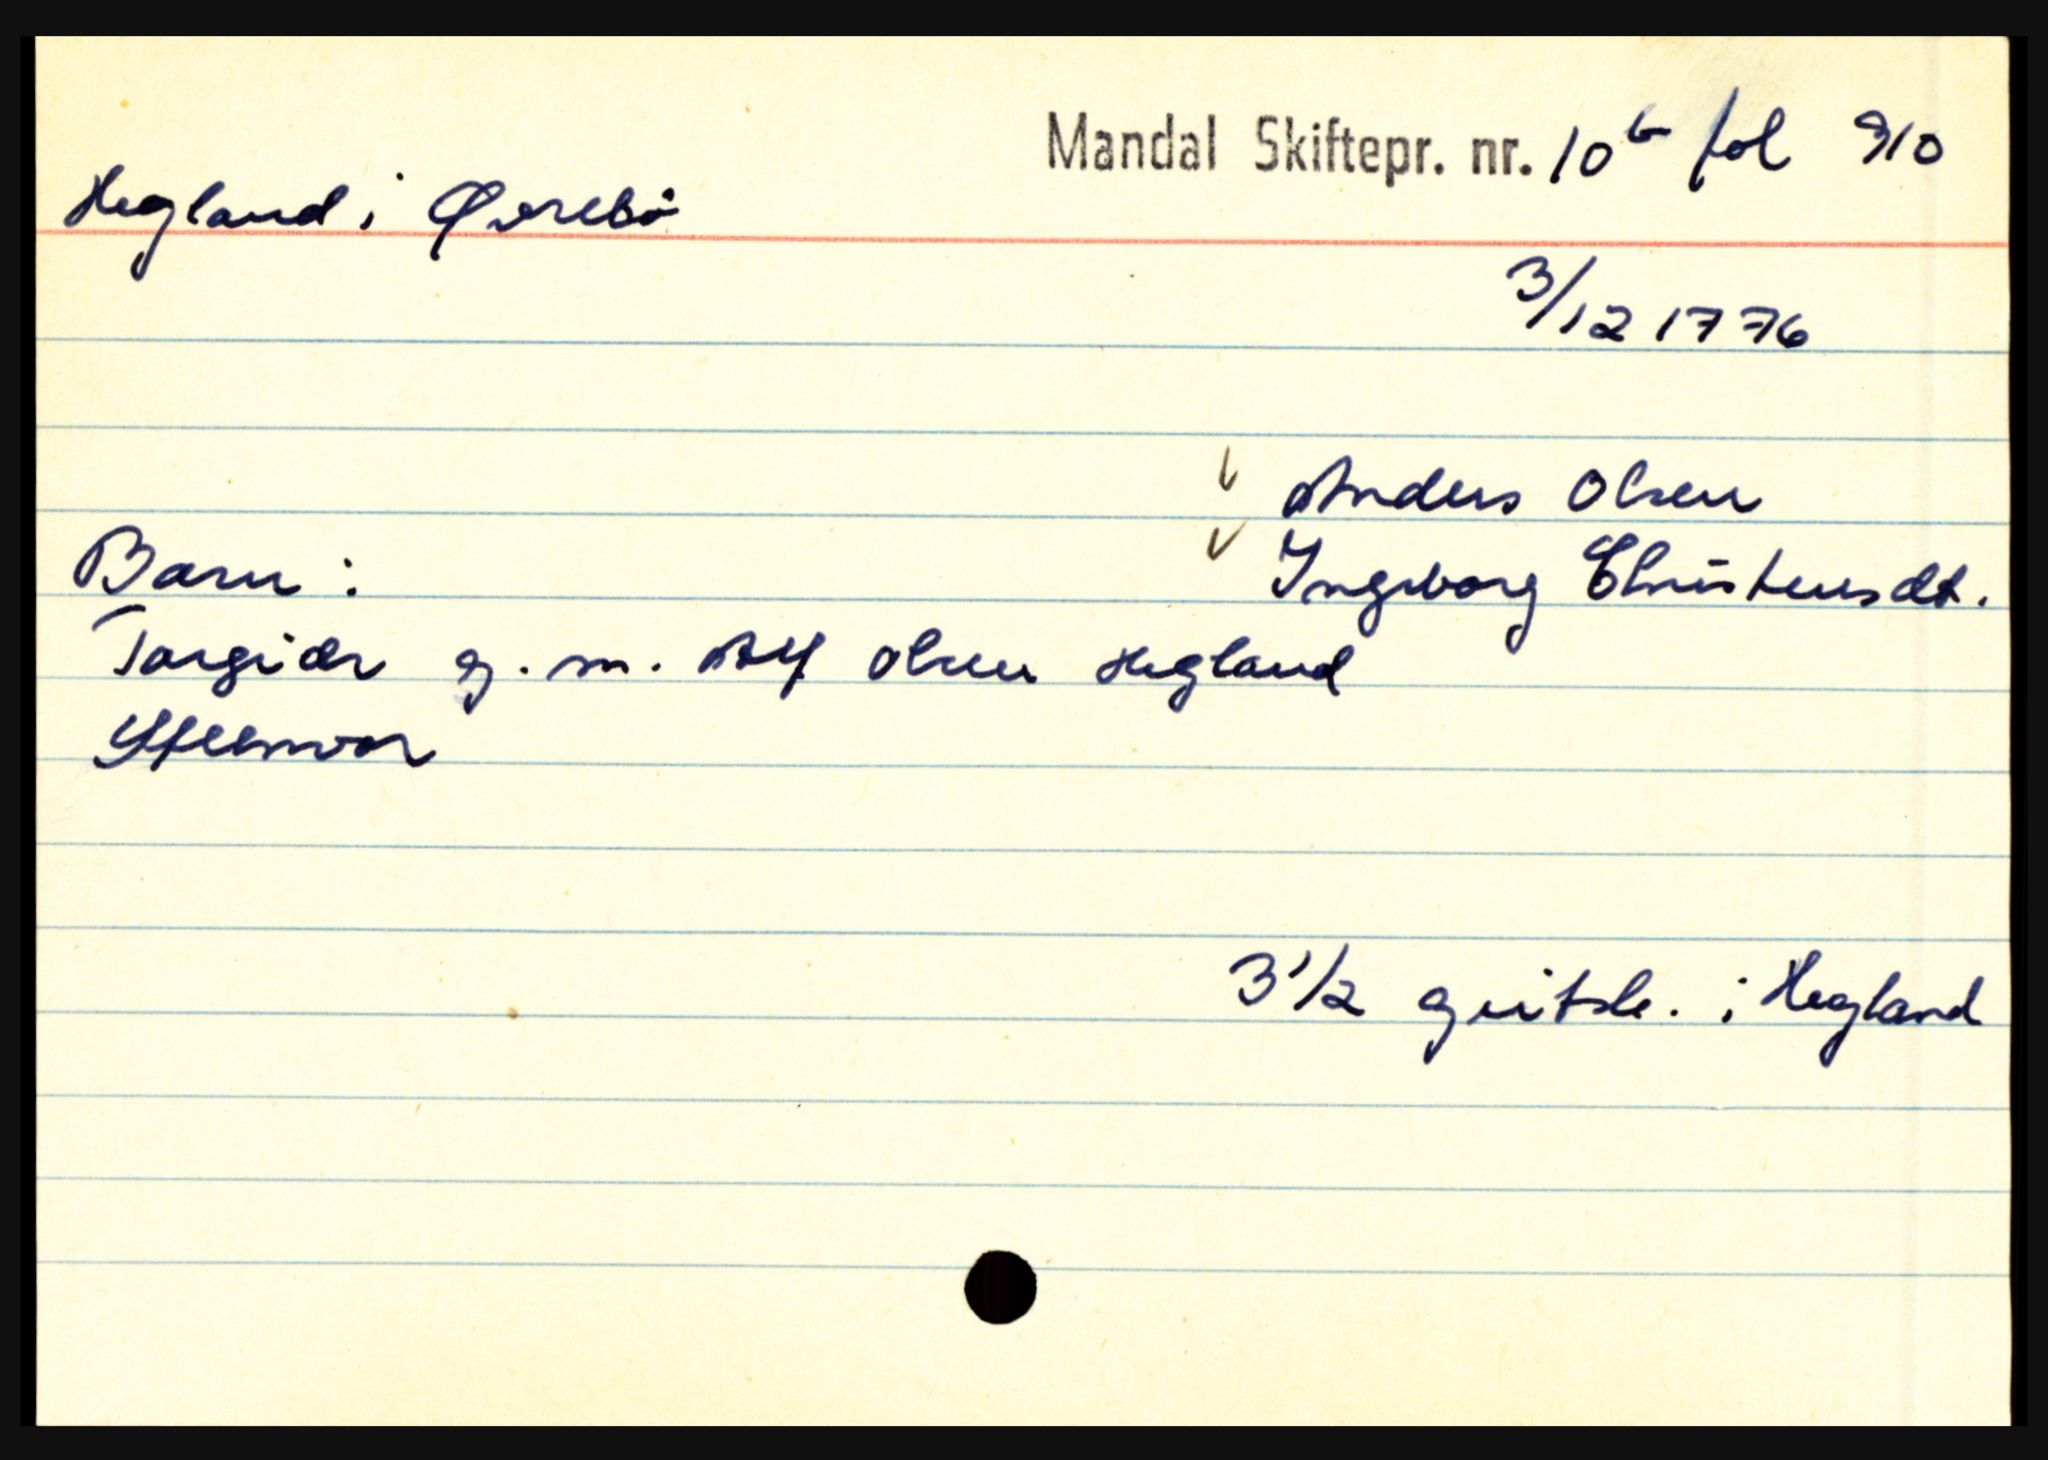 Mandal Skiftepr. nr. 10b fol 910
Hegland i Øvrebö
3/12 1776
Anders Olsen
Barn: Ingeborg Christensdt.
Torgier g. m. Alf Olsen Hegland
Steenvor
3 1/2 geitsle. i Hegland